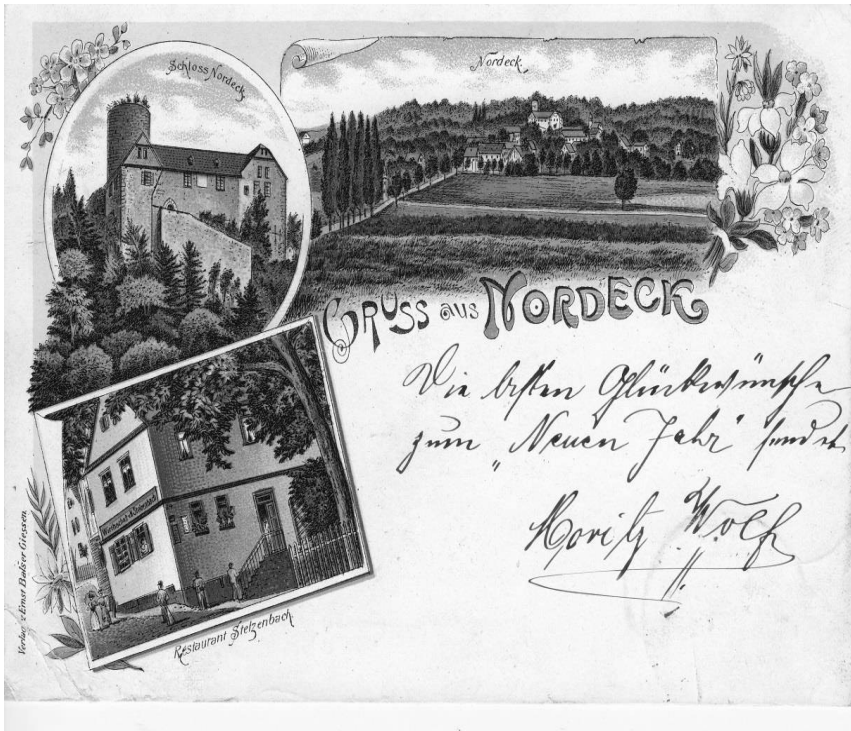 Schloss Nordeck
Nordeck
GRUSS aus NORDECK
Die besten Glückwünsche
zum „Neuen Jahr“ sendet
Moritz Wolf
Restaurant Stelzenbach
Verlag v Ernst Balser Giessen